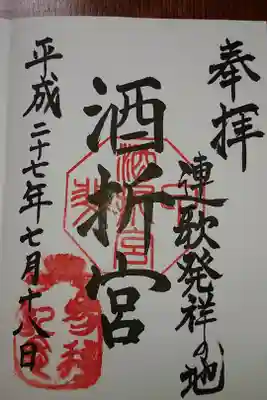 奉拝
連歌発祥の地
酒折宮
平成二十七年七月十八日